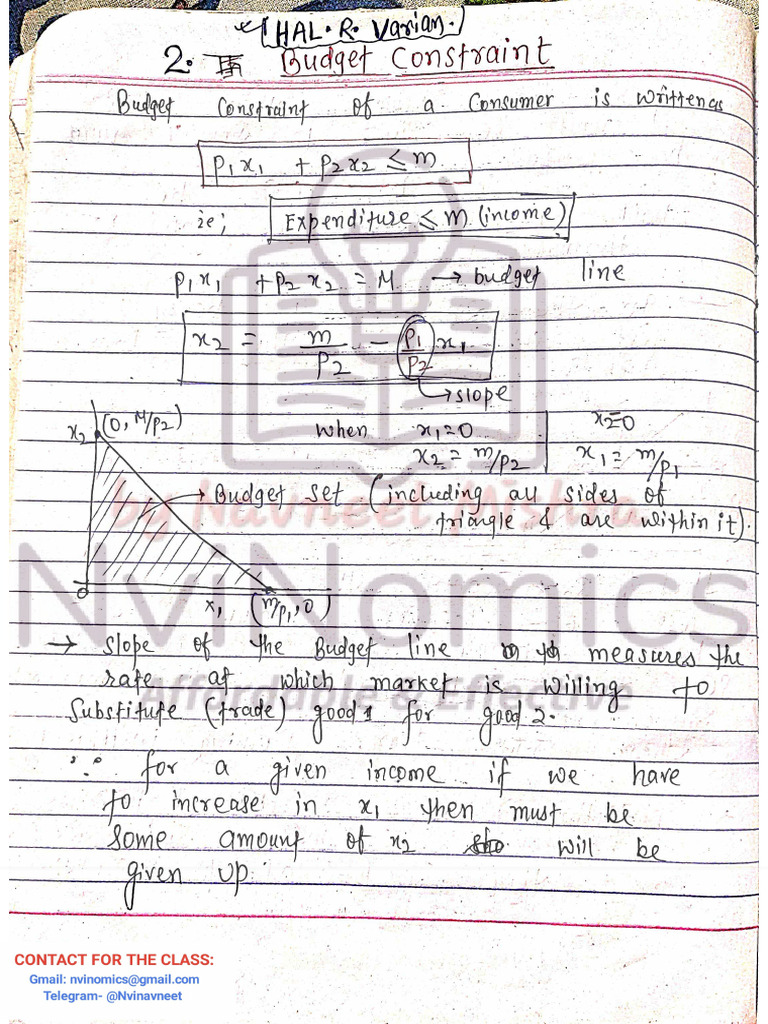 HAL. R. Varian.
2. Budget Constraint
Budget Constraint of a Consumer is written as
P₁x₁ + P₂x₂ ≤ m
ie; Expenditure ≤ M. (income)
P₁x₁ + P₂x₂ = M → budget line
x₂ = m/P₂ - P₁/P₂ x₁
→ slope
x₂ (0, M/P₂)
when x₁=0 x₂=0
x₂ = m/P₂ x₁ = m/P₁
→ Budget set (including all sides of
triangle & are within it).
0 x₁ (m/P₁, 0)
→ slope of the Budget line measures the
rate at which market is willing to
Substitute (trade) good 1 for good 2.
∵ for a given income if we have
to increase in x₁ then must be
some amount of x₂ will be
given up.
by Navneet Mishra
NviNomics
Affordable & Effective
CONTACT FOR THE CLASS:
Gmail: nvinomics@gmail.com
Telegram- @Nvinavneet